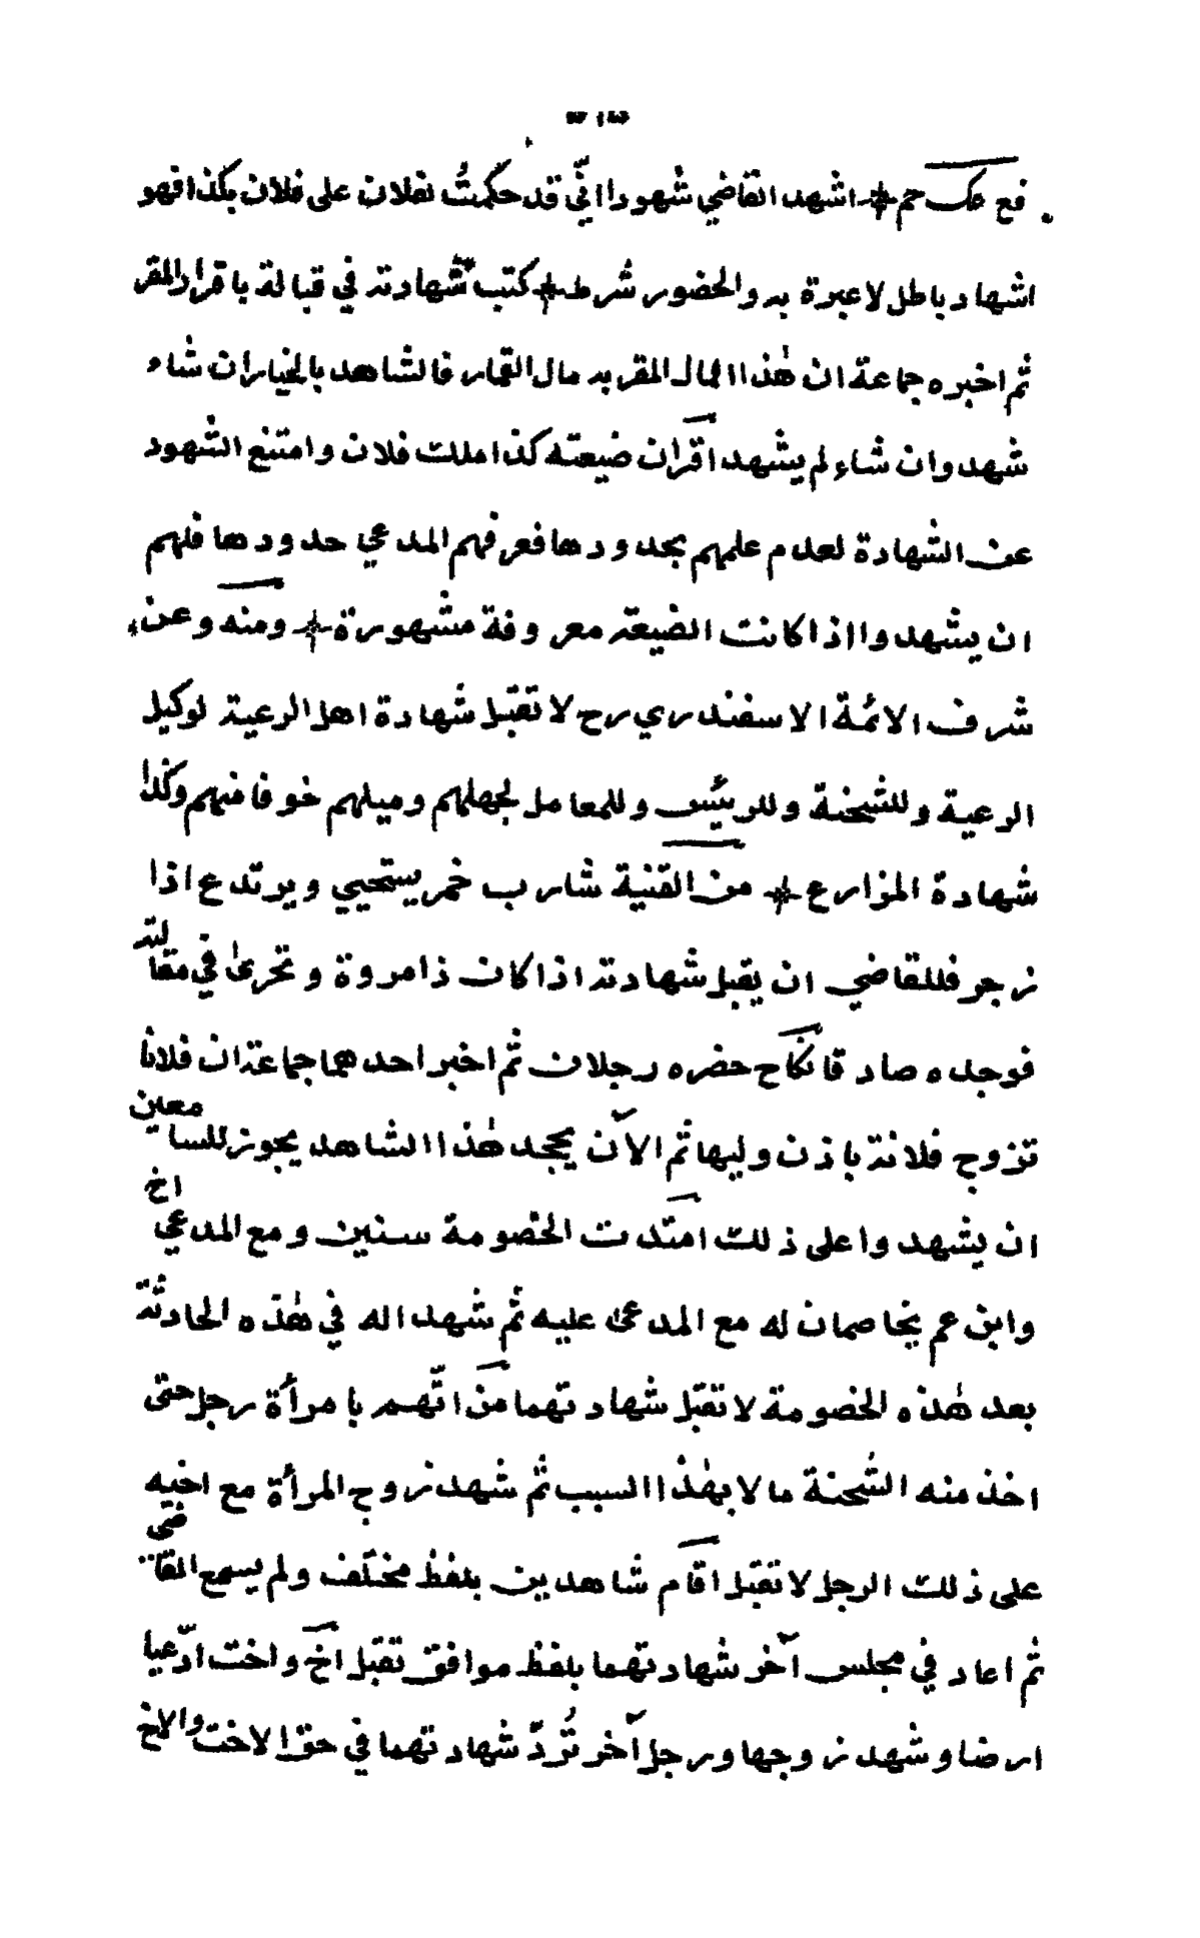 فع عك حم اشهد القاضي شهودا انّي قد حكمتُ لفلان على فلان بكذا فهو
اشهاد باطل لا عبرة به والحضور شرط كتب شهادته في قبالة باقرار المقر
ثم اخبره جماعة ان هٰذا المال المقر به مال القمار فالشاهد بالخيار ان شاء
شهد وان شاء لم يشهد اقر ان ضيعته كذا ملك فلان وامتنع الشهود
عن الشهادة لعدم علمهم بحدودها فعرفهم المدعي حدودها فلهم
ان يشهدوا اذا كانت الضيعة معروفة مشهورة ومنه وعن
شرف الائمة الاسفندري رح لا تقبل شهادة اهل الرعية لوكيل
الرعية وللشحنة وللرئيس وللعامل لجهلهم وميلهم خوفا منهم وكذا
شهادة المزارع من القنية شارب خمر يستحيي ويرتدع اذا
زجر فللقاضي ان يقبل شهادته اذا كان ذا مروة وتحرىٰ في مقالته
فوجده صادقا نكاح حضره رجلان ثم اخبر احدهما جماعة ان فلانا
تزوج فلانة باذن وليها ثم الآن يجحد هٰذا الشاهد يجوز للسامعين
ان يشهدوا على ذلك امتدت الخصومة سنين ومع المدعي اخ
وابن عم يخاصمان له مع المدعىٰ عليه ثم شهدا له في هٰذه الحادثة
بعد هٰذه الخصومة لا تقبل شهادتهما من اتّهم بامرأة رجل حتى
اخذ منه الشحنة مالا بهٰذا السبب ثم شهد زوج المرأة مع اخيه
على ذلك الرجل لا تقبل اقام شاهدين بلفظ مختلف ولم يسمع القاضى
ثم اعاد في مجلس آخر شهادتهما بلفظ موافق تقبل اخ واخت ادّعيا
ارضا وشهد زوجها ورجل آخر تُردّ شهادتهما في حق الاخت والاخ